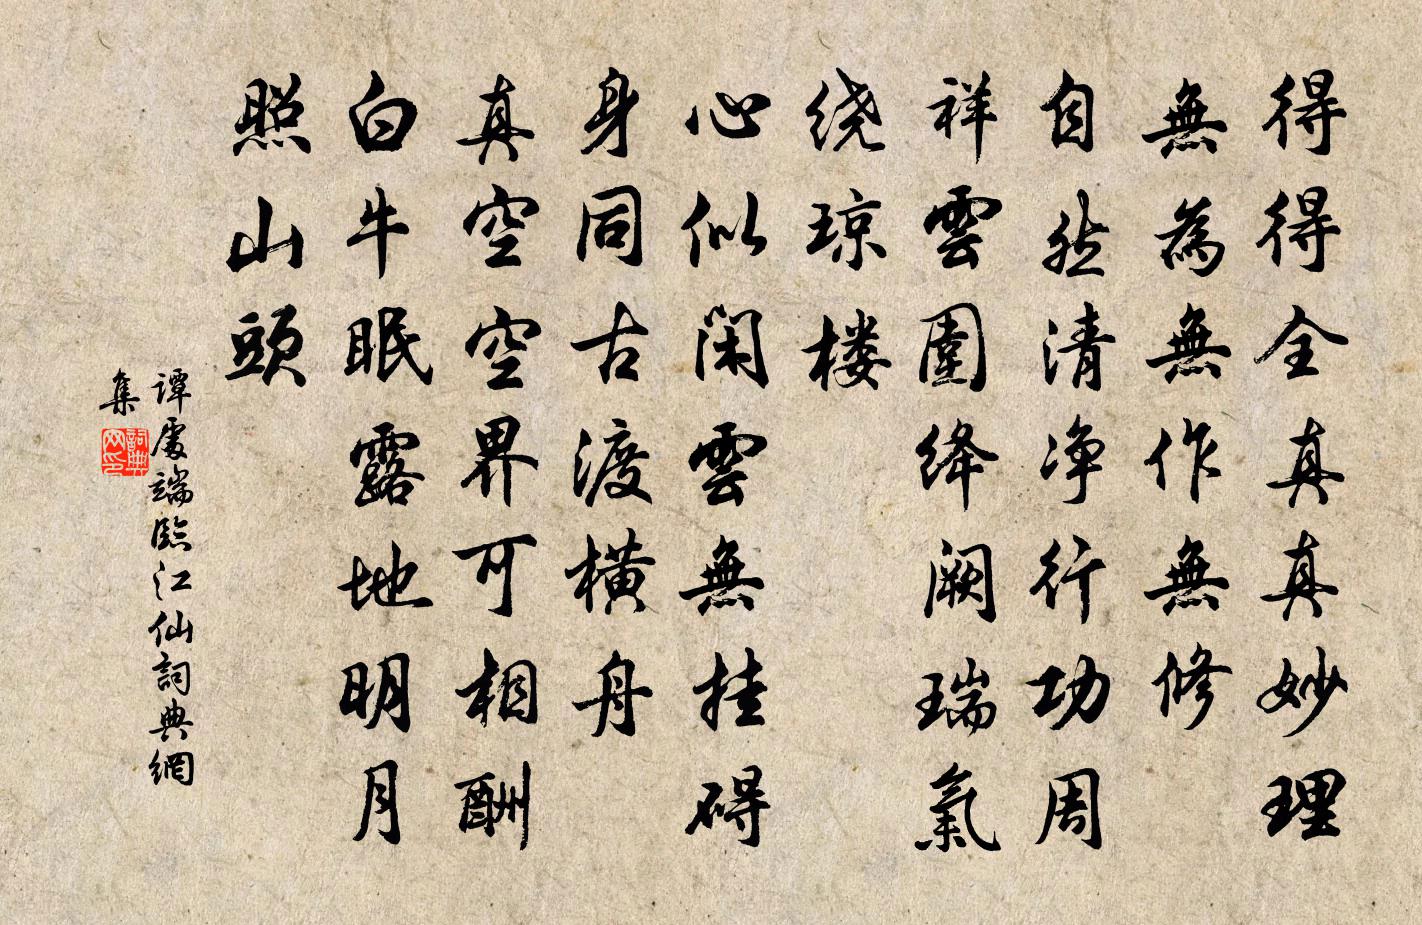 得得全真真妙理
無為無作無修
自然清净行功周
祥雲圍绛阙瑞氣
绕琼楼
心似闲雲無挂碍
身同古渡横舟
真空空界可相酬
白牛眠露地明月
照山頭
谭處端臨江仙詞典網
集
詞典
网印